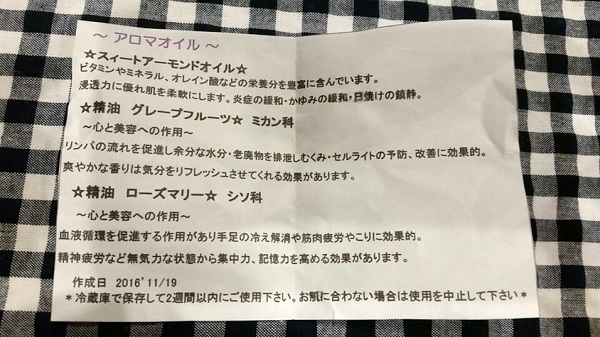 ～ アロマオイル ～
☆スィートアーモンドオイル☆
ビタミンやミネラル、オレイン酸などの栄養分を豊富に含んでいます。
浸透力に優れ肌を柔軟にします。炎症の緩和・かゆみの緩和・日焼けの鎮静。
☆精油 グレープフルーツ☆ ミカン科
～心と美容への作用～
リンパの流れを促進し余分な水分・老廃物を排泄しむくみ・セルライトの予防、改善に効果的。
爽やかな香りは気分をリフレッシュさせてくれる効果があります。
☆精油 ローズマリー☆ シソ科
～心と美容への作用～
血液循環を促進する作用があり手足の冷え解消や筋肉疲労やこりに効果的。
精神疲労など無気力な状態から集中力、記憶力を高める効果があります。
作成日 2016'11/19
＊冷蔵庫で保存して2週間以内にご使用下さい。お肌に合わない場合は使用を中止して下さい＊